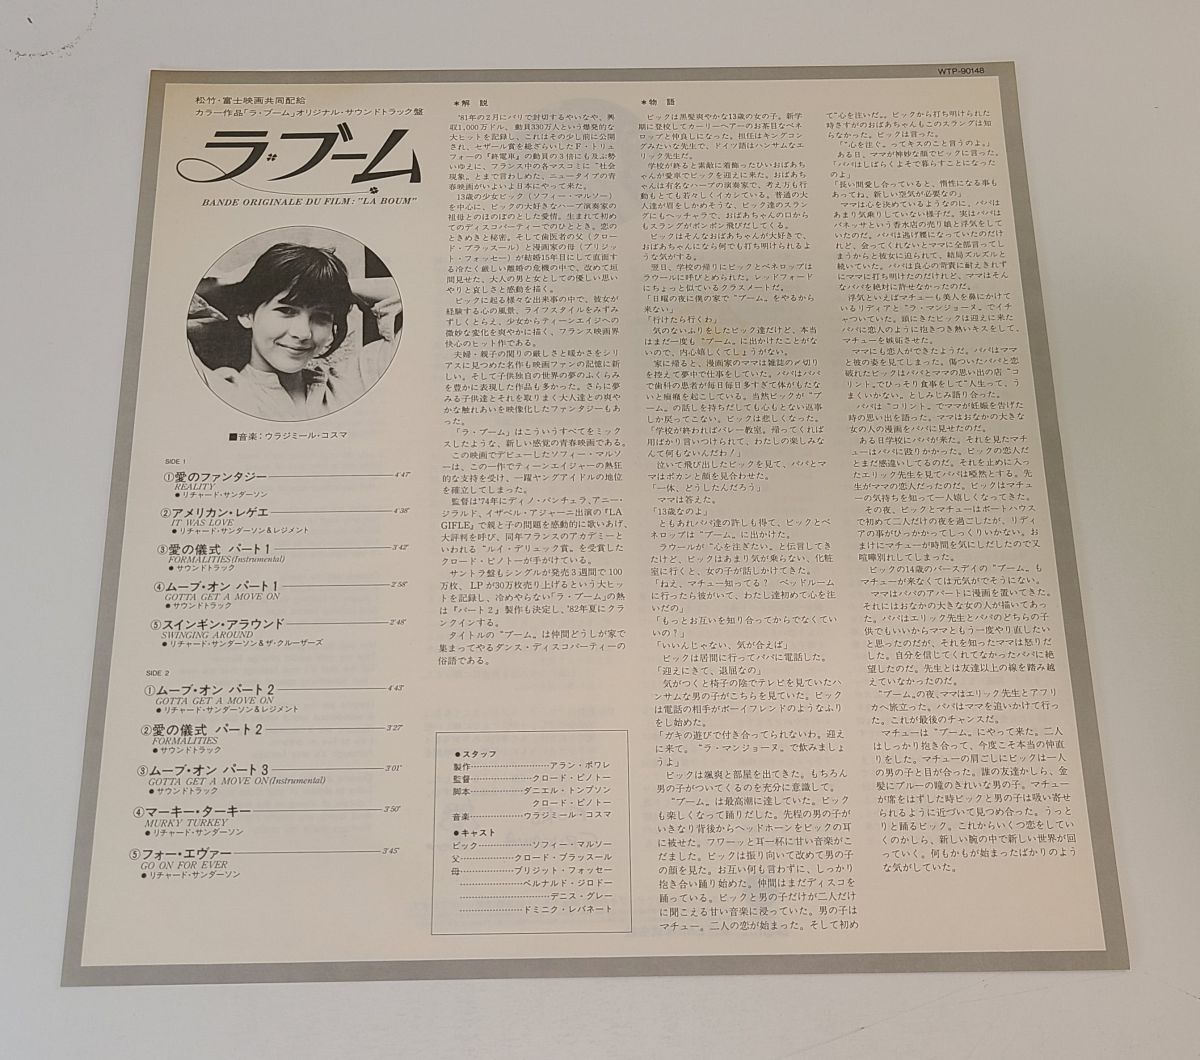 WTP-90148
松竹・富士映画共同配給
カラー作品「ラ・ブーム」オリジナル・サウンドトラック盤
ラ・ブーム
BANDE ORIGINALE DU FILM: "LA BOUM"
■音楽:ウラジミール・コスマ
SIDE 1
①愛のファンタジー 4'47"
REALITY
●リチャード・サンダーソン
②アメリカン・レゲエ 4'38"
IT WAS LOVE
●リチャード・サンダーソン&レジメント
③愛の儀式 パート1 3'42"
FORMALITIES(Instrumental)
●サウンドトラック
④ムーブ・オン パート1 2'58"
GOTTA GET A MOVE ON
●サウンドトラック
⑤スインギン・アラウンド 2'48"
SWINGING AROUND
●リチャード・サンダーソン&ザ・クルーザーズ
SIDE 2
①ムーブ・オン パート2 4'43"
GOTTA GET A MOVE ON
●リチャード・サンダーソン&レジメント
②愛の儀式 パート2 3'27"
FORMALITIES
●サウンドトラック
③ムーブ・オン パート3 3'01"
GOTTA GET A MOVE ON(Instrumental)
●サウンドトラック
④マーキー・ターキー 3'50"
MURKY TURKEY
●リチャード・サンダーソン
⑤フォー・エヴァー 3'45"
GO ON FOR EVER
●リチャード・サンダーソン
＊解説
'81年の2月にパリで封切するやいなや、興
収1,000万ドル、動員330万人という爆発的な
大ヒットを記録し、これはその少し前に公開
され、セザール賞を総ざらいしたF・トリュ
フォーの『終電車』の動員の3倍にも及ぶ勢
いゆえに、フランス中の各マスコミに"社会
現象〟とまで言わしめた、ニュータイプの青
春映画がいよいよ日本にやって来た。
13歳の少女ビック(ソフィー・マルソー)
を中心に、ビックの大好きなハープ演奏家の
祖母とのほのぼのとした愛情。生まれて初め
てのディスコパーティーでのひととき、恋の
ときめきと秘密。そして歯医者の父(クロー
ド・ブラッスール)と漫画家の母(ブリジッ
ト・フォッセー)が結婚15年目にして直面す
る冷たく厳しい離婚の危機の中で、改めて垣
間見せた、大人の男と女としての優しい思い
やりと哀しさと感動を描く。
ビックに起る様々な出来事の中で、彼女が
経験する心の風景、ライフスタイルをみずみ
ずしくとらえ、少女からティーンエイジへの
微妙な変化を爽やかに描く、フランス映画界
快心のヒット作である。
夫婦・親子の関りの厳しさと暖かさをシリ
アスに見つめた名作も映画ファンの記憶に新
しい。そして子供独自の世界の夢のふくらみ
を豊かに表現した作品も多かった。さらに夢
みる子供達とそれを取りまく大人達との爽や
かな触れあいを映像化したファンタジーもあ
った。
「ラ・ブーム」はこういうすべてをミック
スしたような、新しい感覚の青春映画である。
この映画でデビューしたソフィー・マルソ
ーは、この一作でティーンエイジャーの熱狂
的な支持を受け、一躍ヤングアイドルの地位
を確立してしまった。
監督は'74年にディノ・バンチュラ、アニー・
ジラルド、イザベル・アジャーニ出演の『LA
GIFLE』で親と子の問題を感動的に歌いあげ、
大評判を呼び、同年フランスのアカデミーと
いわれる"ルイ・デリュック賞〟を受賞した
クロード・ピノトーが手がけている。
サントラ盤もシングルが発売3週間で100
万枚、LPが30万枚売り上げるという大ヒッ
トを記録し、冷めやらない「ラ・ブーム」の熱
は『パート2』製作も決定し、'82年夏にクラ
ンクインする。
タイトルの"ブーム〟は仲間どうしが家で
集まってやるダンス・ディスコパーティーの
俗語である。
●スタッフ
製作……アラン・ポワレ
監督……クロード・ピノトー
脚本……ダニエル・トンプソン
クロード・ピノトー
音楽……ウラジミール・コスマ
●キャスト
ビック……ソフィー・マルソー
父……クロード・ブラッスール
母……ブリジット・フォッセー
……ベルナルド・ジロドー
……デニス・グレー
……ドミニク・レバネート
＊物語
ビックは黒髪爽やかな13歳の女の子。新学
期に登校してカーリーヘアーのお茶目なペネ
ロップと仲良しになった。担任はキングコン
グみたいな先生で、ドイツ語はハンサムなエ
リック先生だ。
学校が終ると素敵に着飾ったひいおばあち
ゃんが愛車でビックを迎えに来た。おばあち
ゃんは有名なハープの演奏家で、考え方も行
動もとても若々しくイカしている。普通の大
人達が眉をしかめそうな、ビック達のスラン
グにもヘッチャラで、おばあちゃんの口から
もスラングがポンポン飛びだしてくる。
ビックはそんなおばあちゃんが大好きで、
おばあちゃんになら何でも打ち明けられるよ
うな気がする。
翌日、学校の帰りにビックとペネロップは
ラウールに呼びとめられた。レッドフォード
にちょっと似ているクラスメートだ。
「日曜の夜に僕の家で"ブーム〟をやるから
来ない」
「行けたら行くわ」
気のないふりをしたビック達だけど、本当
はまだ一度も"ブーム〟に出かけたことがな
いので、内心嬉しくてしょうがない。
家に帰ると、漫画家のママは雑誌の〆切り
を控えて夢中で仕事をしていた。パパはパパ
で歯科の患者が毎日毎日多すぎて体がもたな
いと癇癪を起こしている。当然ビックが"ブ
ーム〟の話しを持ちだしても心もとない返事
しか戻ってこない。ビックは悲しくなった。
「学校が終わればバレー教室。帰ってくれば
用ばかり言いつけられて、わたしの楽しみな
んて何もないんだわ!」
泣いて飛び出したビックを見て、パパとマ
マはポカンと顔を見合わせた。
「一体、どうしたんだろう」
ママは答えた。
「13歳なのよ」
ともあれパパ達の許しも得て、ビックとペ
ネロップは"ブーム〟に出かけた。
ラウールが"心を注ぎたい〟と伝言してき
たけど、ビックはあまり気が乗らない、化粧
室に行くと、女の子が話しかけてきた。
「ねえ、マチュー知ってる? ベッドルーム
に行ったら彼がいて、わたし達初めて心を注
いだの」
「もっとお互いを知り合ってからでなくてい
いの?」
「いいんじゃない、気が合えば」
ビックは居間に行ってパパに電話した。
「迎えにきて、退屈なの」
気がつくと椅子の陰でテレビを見ていたハ
ンサムな男の子がこちらを見ていた。ビック
は電話の相手がボーイフレンドのようなふり
をし始めた。
「ガキの遊びで付き合ってられないわ。迎え
に来て。"ラ・マンジョーヌ〟で飲みましょ
うよ」
ビックは颯爽と部屋を出てきた。もちろん
男の子がついてくるのを充分に意識して。
"ブーム〟は最高潮に達していた。ビック
も楽しくなって踊りだした。先程の男の子が
いきなり背後からヘッドホーンをビックの耳
に被せた。フワーッと耳一杯に甘い音楽がこ
だました。ビックは振り向いて改めて男の子
の顔を見た。お互い何も言わずに、しっかり
抱き合い踊り始めた。仲間はまだディスコを
踊っている。ビックと男の子だけが二人だけ
に聞こえる甘い音楽に浸っていた。男の子は
マチュー。二人の恋が始まった。そして初め
て"心を注いだ〟。ビックから打ち明けられた
時さすがのおばあちゃんもこのスラングは知
らなかった。ビックは言った。
「"心を注ぐ〟ってキスのこと言うのよ。」
ある日、ママが神妙な顔でビックに言った。
「パパはしばらくよそで暮らすことになった
のよ」
「長い間愛し合っていると、惰性になる事も
あってね、新しい空気が必要なの」
ママは心を決めているようなのに、パパは
あまり気乗りしていない様子だ。実はパパは
バネッサという香水店の売り娘と浮気をして
いたのだ。パパは逃げ腰になっていたのだけ
れど、会ってくれないとママに全部言ってし
まうからと彼女に迫られて、結局ズルズルと
続いていた。パパは良心の苛責に耐えきれず
にママに打ち明けたのだけれど、ママはそん
なパパを絶対に許せなかったのだ。
浮気といえばマチューも美人を鼻にかけて
いるリディアと"ラ・マンジョーヌ〟でイチ
ャついていた。頭にきたビックは迎えに来た
パパに恋人のように抱きつき熱いキスをして、
マチューを嫉妬させた。
ママにも恋人ができたようだ。パパはママ
と彼の姿を見てしまった。傷ついたパパと恋
破れたビックはパパとママの思い出の店"コ
リント〟でひっそり食事をして"人生って、う
まくいかない〟としみじみ語り合った。
パパは"コリント〟でママが妊娠を告げた
時の思い出を語った。ママはおなかの大きな
女の人の漫画をパパに見せたのだ。
ある日学校にパパが来た。それを見たマチ
ューはパパに殴りかかった。ビックの恋人だ
とまだ感違いしてるのだ。それを止めに入っ
たエリック先生を見てパパは啞然とする。先
生がママの恋人だったのだ。ビックはマチュ
ーの気持ちを知って一人嬉しくなってきた。
その夜、ビックとマチューはボートハウス
で初めて二人だけの夜を過ごしたが、リディ
アの事がひっかかってしっくりいかない。お
まけにマチューが時間を気にしだしたので又
喧嘩別れしてしまった。
ビックの14歳のバースデイの"ブーム〟も
マチューが来なくては元気がでそうにない。
ママはパパのアパートに漫画を置いてきた。
それにはおなかの大きな女の人が描いてあっ
た。パパはエリック先生とパパのどちらの子
供でもいいからママともう一度やり直したい
と思ったのだが、それを知ったママは怒りだ
した。自分を信じてくれてなかったパパに絶
望したのだ。先生とは友達以上の線を踏み越
えていなかったのだ。
"ブーム〟の夜、ママはエリック先生とアフリ
カへ旅立った。パパはママを追いかけて行っ
た。これが最後のチャンスだ。
マチューは"ブーム〟にやって来た。二人
はしっかり抱き合って、今度こそ本当の仲直
りをした。マチューの肩ごしにビックは一人
の男の子と目が合った。誰の友達かしら、金
髪にブルーの瞳のきれいな男の子。マチュー
が席をはずした時ビックと男の子は吸い寄せ
られるように近づいて見つめ合った。うっと
りと踊るビック。これからいくつ恋をしてい
くのかしら、新しい腕の中で新しい世界が回
っていく。何もかもが始まったばかりのよう
な気がしていた。